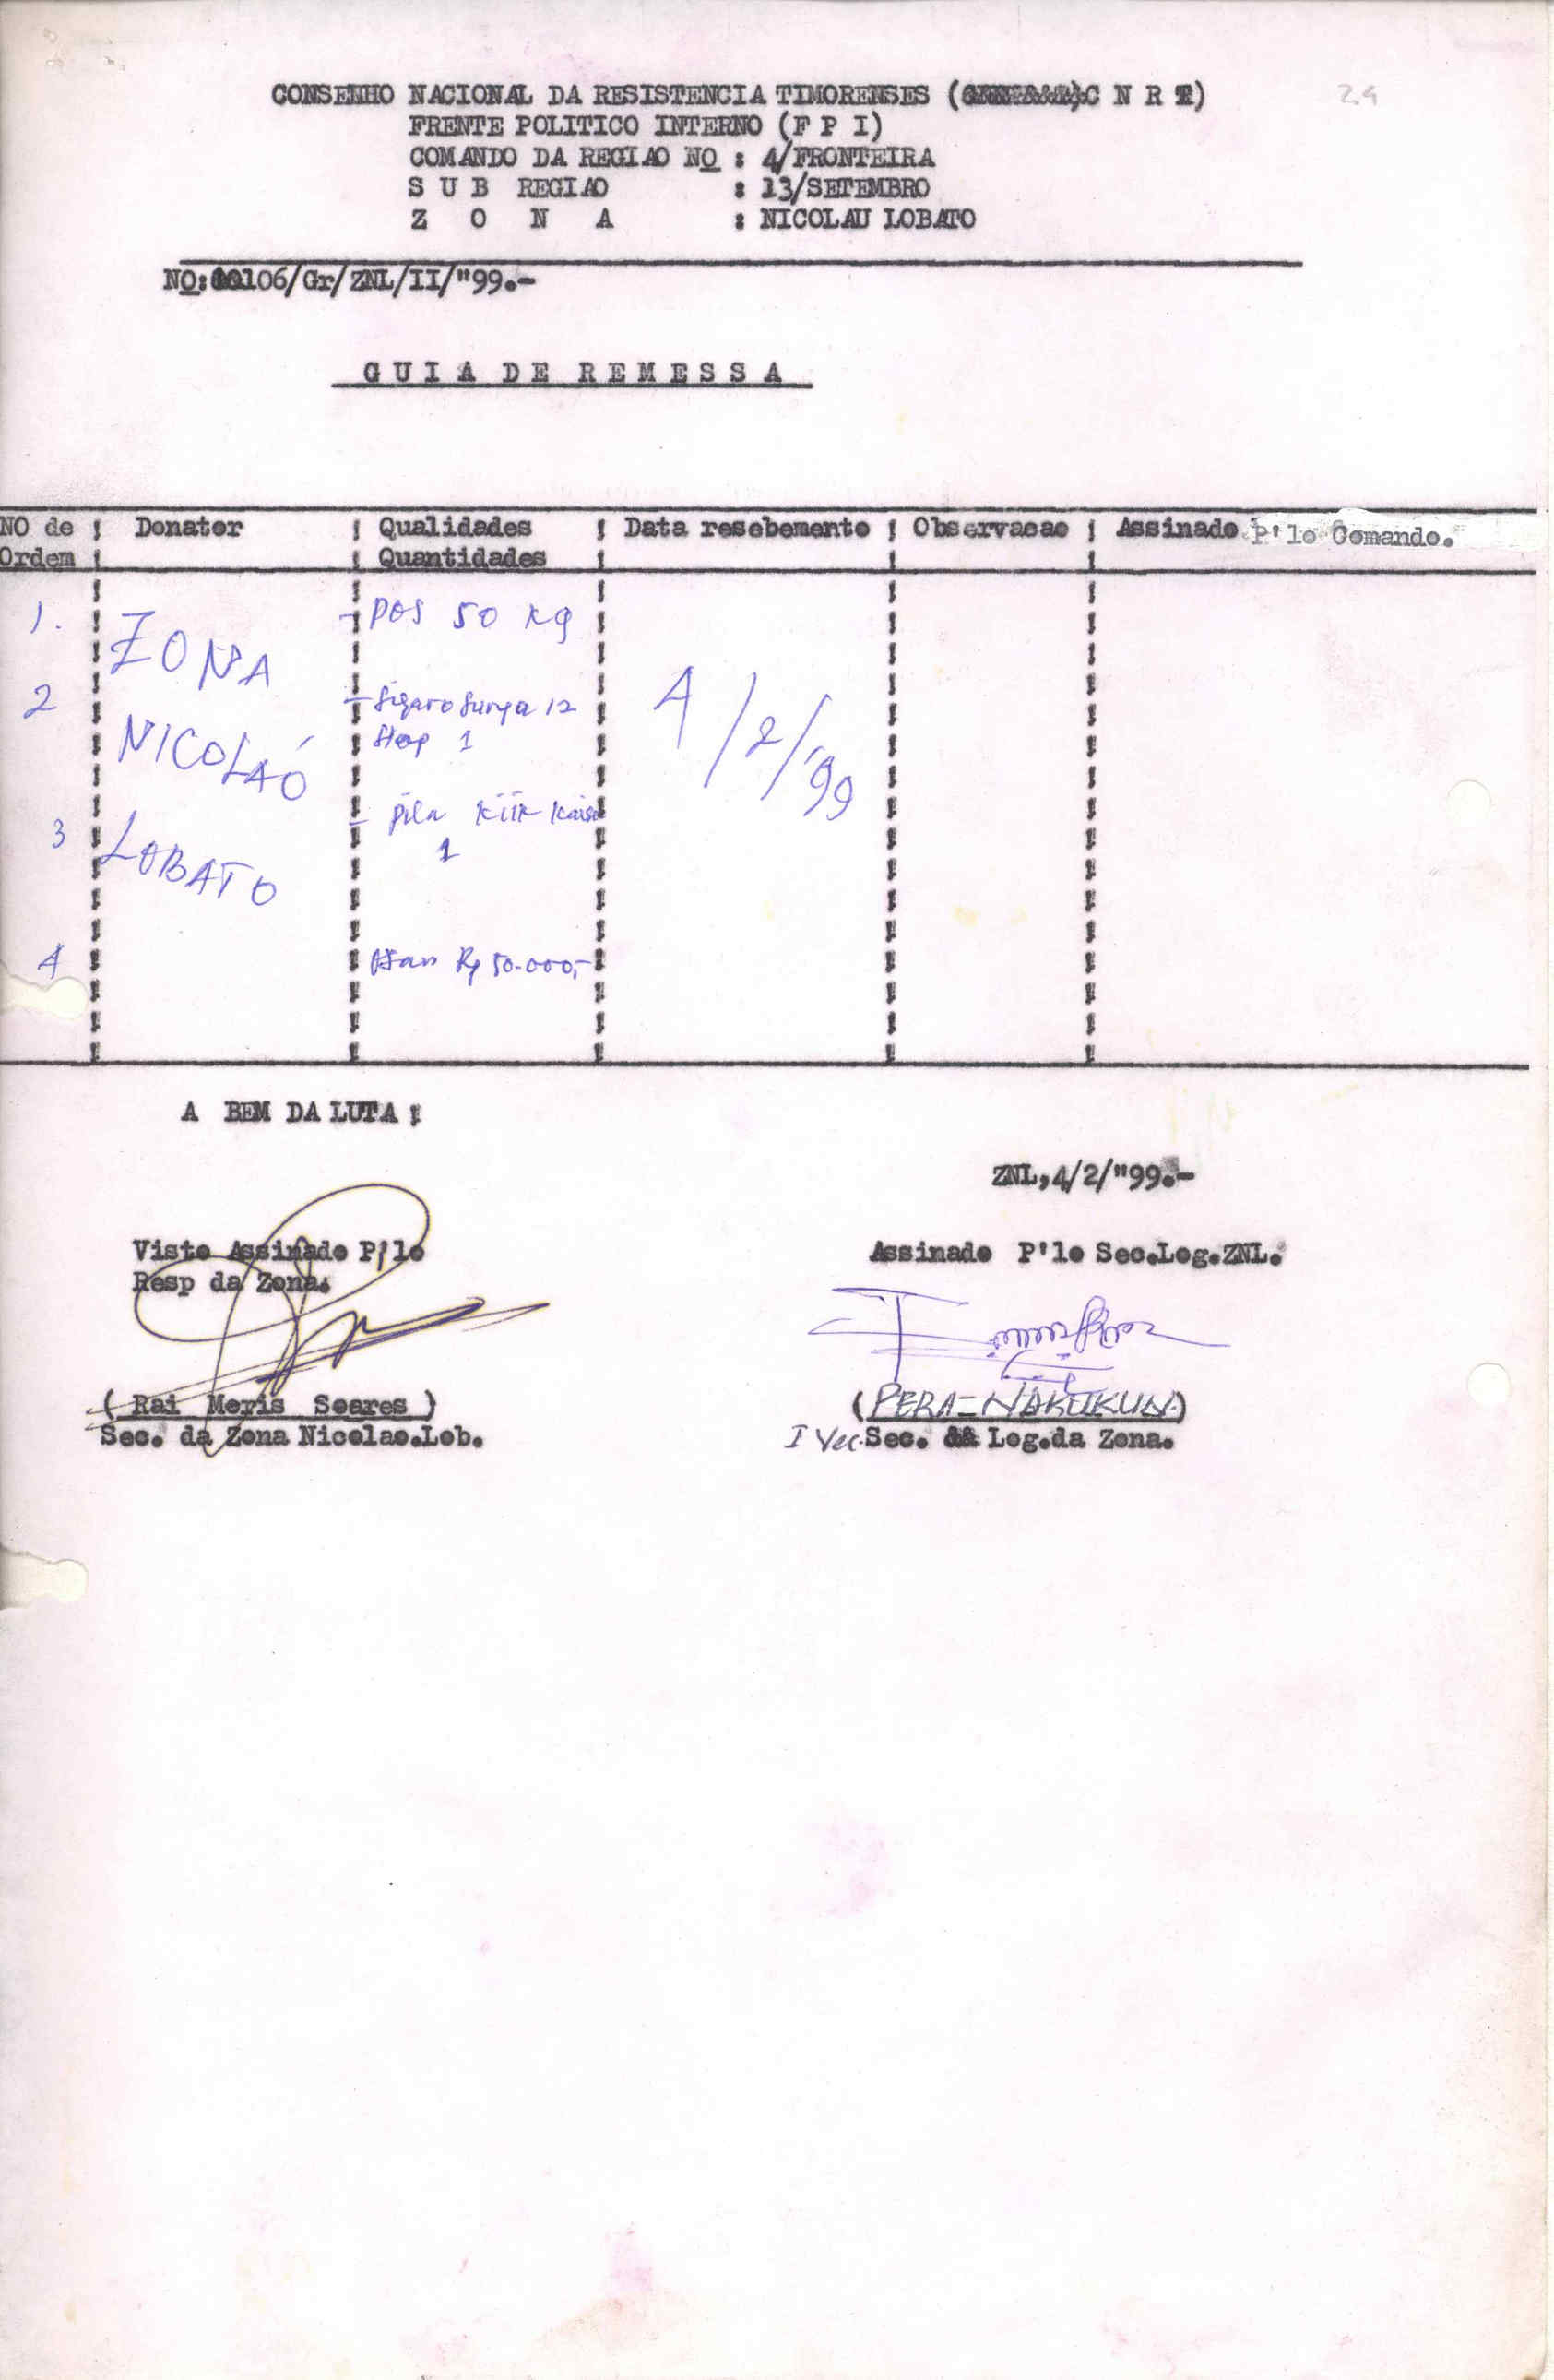 CONSENHO NACIONAL DA RESISTENCIA TIMORENSES ( C N R T)
24
FRENTE POLITICO INTERNO (F P I)
COMANDO DA REGIAO NO : 4/FRONTEIRA
S U B REGIAO : 13/SETEMBRO
Z O N A : NICOLAU LOBATO
NO: 106/Gr/ZNL/II/"99.-
G U I A D E R E M E S S A
NO de Ordem ! Donator ! Qualidades Quantidades ! Data resebemento ! Observacao ! Assinado P'lo Comando.
1. ZONA - pos 50 kg
2 NICOLAÓ - Sigaro Surya 12
Slop 1 4/2/'99
3 LOBATO - pila kiik
1
4 Rp 50.000,-
A BEM DA LUTA !
ZNL,4/2/"99.-
Visto Assinado P'lo
Resp da Zona.
Assinado P'lo Sec.Log.ZNL.
( Rai Meris Soares )
Sec. da Zona Nicolao.Lob.
(PERA-NAKUKUN)
I Vec. Sec. Log.da Zona.